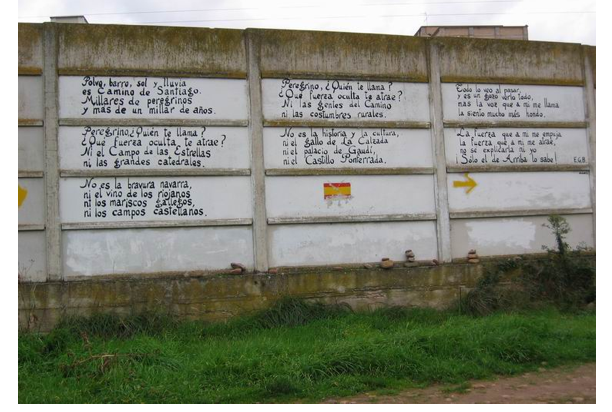 Polvo, barro, sol y lluvia
es Camino de Santiago.
Millares de peregrinos
y más de un millar de años.
Peregrino, ¿Quién te llama?
¿Qué fuerza oculta te atrae?
Ni el Campo de las Estrellas
ni las grandes catedrales.
No es la bravura navarra,
ni el vino de los riojanos
ni los mariscos gallegos,
ni los campos castellanos.
Peregrino, ¿Quién te llama?
¿Qué fuerza oculta te atrae?
Ni las gentes del Camino
ni las costumbres rurales.
No es la historia y la cultura,
ni el gallo de La Calzada
ni el palacio de Gaudí,
ni el Castillo Ponferrada.
Todo lo veo al pasar,
y es un gozo verlo todo,
mas la voz que a mi me llama
la siento mucho más hondo.
La fuerza que a mi me empuja
la fuerza que a mi me atrae,
no sé explicarla ni yo
¡Solo el de Arriba lo sabe! E.G.B.